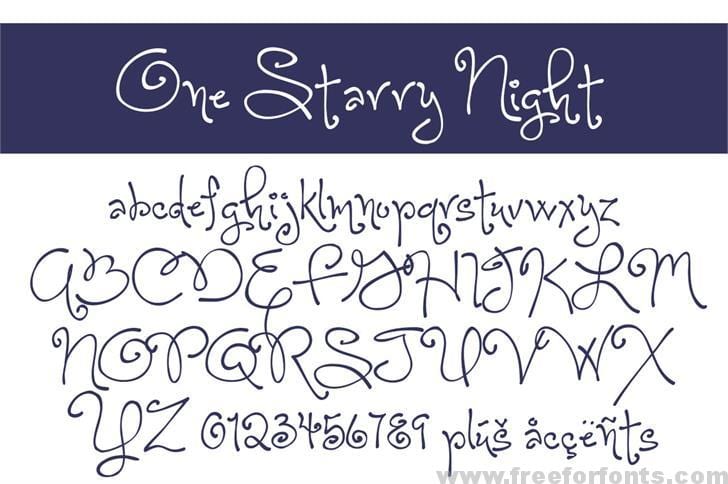 One Starry Night
abcdefghijklmnopqrstuvwxyz
ABCDEFGHIJKLM
NOPQRSTUVWX
YZ 0123456789 plúš åccçëñts
www.freeforfonts.com